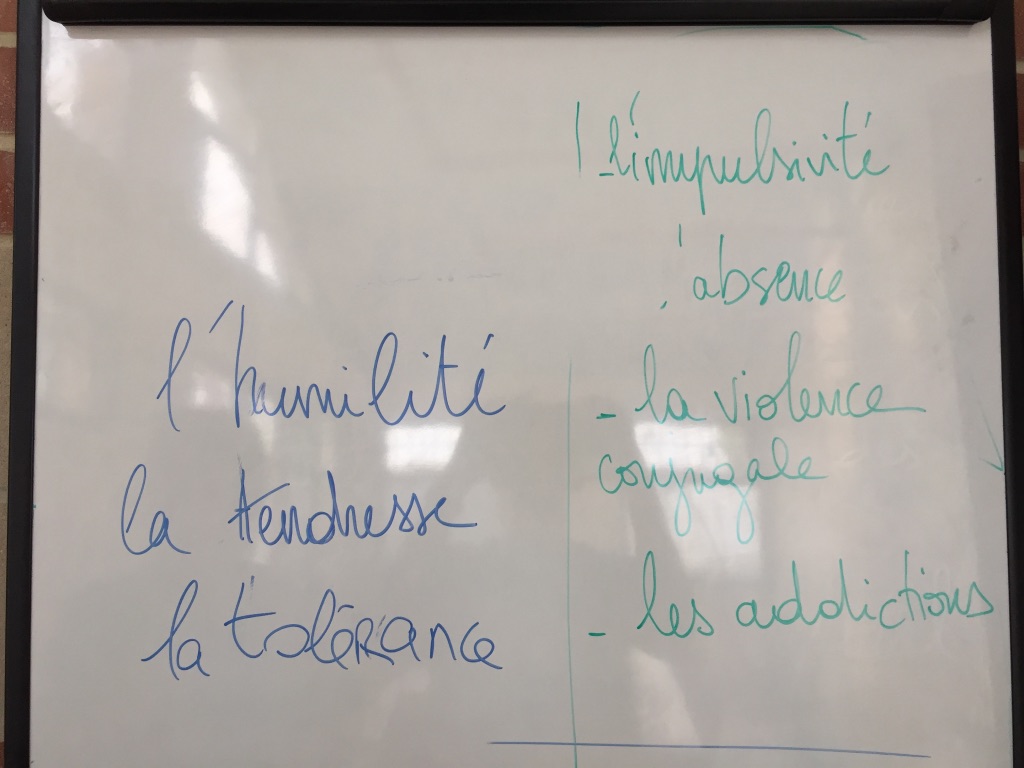 l'humilité
la tendresse
la tolérance
- l'impulsivité
'absence
- la violence
conjugale
- les addictions